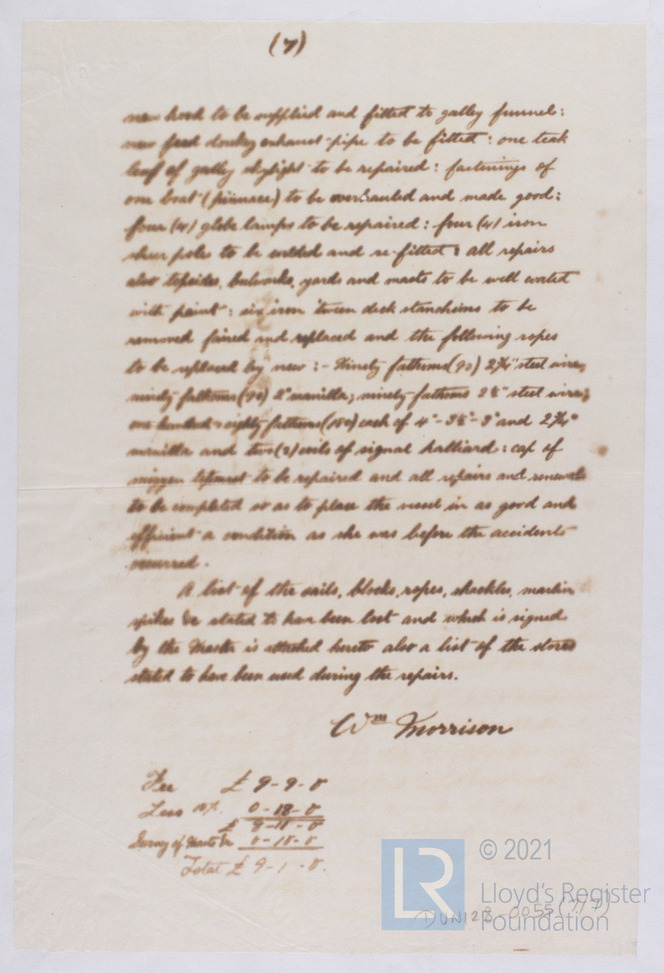 (7)
new hook to be supplied and fitted to galley funnel:
new feed donkey exhaust-pipe to be fitted: one teak
leaf of galley skylight to be repaired: fastenings of
one boat (pinnace) to be overhauled and made good:
four (4) globe lamps to be repaired: four (4) iron
sheer poles to be welded and re-fitted: all repairs
also topsides, bulwarks, yards and masts to be well coated
with paint: six iron 'tween deck stanchions to be
removed faired and replaced and the following ropes
to be replaced by new:- Ninety fathoms (90) 2¾" steel wire,
ninety fathoms (90) 2" manilla; ninety-fathoms steel wire;
one hundred & eighty fathoms (180) each of 4" - 3½" - 3" and 2¾"
manilla and two (2) coils of signal halliard: cap of
mizzen topmast to be repaired and all repairs and renewals
to be completed so as to place the vessel in as good and
efficient a condition as she was before the accidents
occurred.
A list of the sails, blocks, ropes, shackles, marlin
spikes &c stated to have been lost and which is signed
by the Master is attached hereto also a list of the stores
stated to have been used during the repairs.
Wm Morrison
Fee £ 9-9-0
Less 10%. 0-18-0
£
Survey of Masts &c 0-10-0
Total £ 9-1-0.
LR
© 2021
Lloyd's Register
Foundation
DUN128-0055 (7/7)